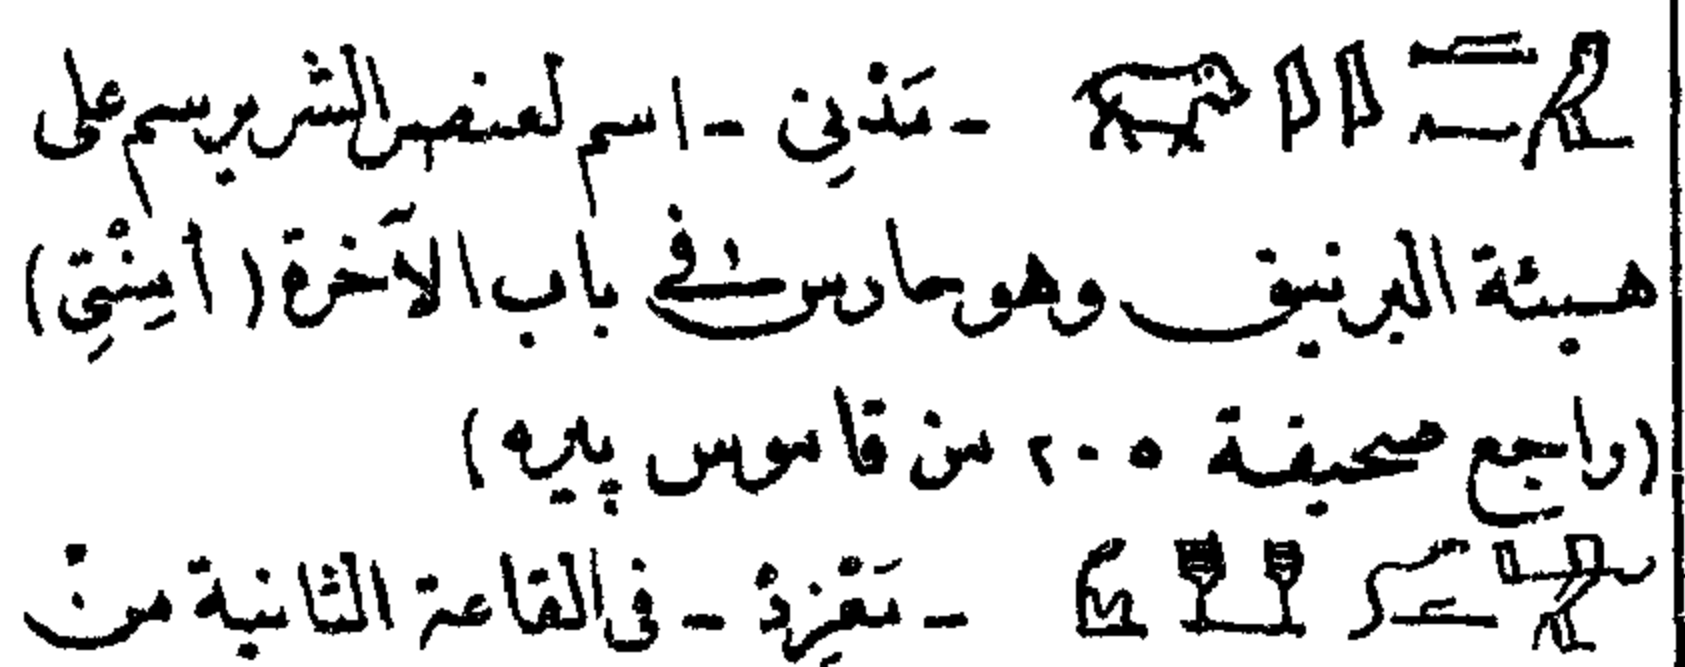 - مَذْنِى - اسم لعنصر الشر يرسم على
هيئة البرنيق وهو حارس فى باب الآخرة (أمِنْتِى)
(راجع صحيفة ٢٠٥ من قاموس پيره)
- فى القاعة الثانية من